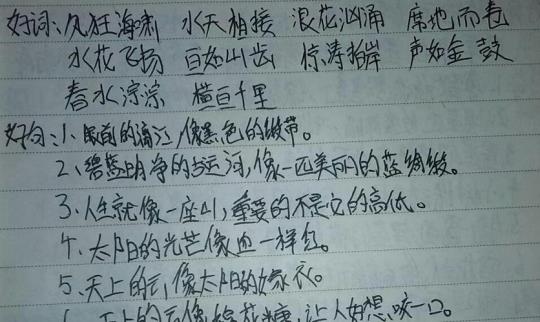 好词:风狂海啸 水天相接 浪花汹涌 席地而卷
水花飞扬 亘如山岳 惊涛拍岸 声如金鼓
春水淙淙 横亘千里
好句:1、眼前的漓江,像黑色的缎带。
2、碧蓝明净的大运河,像一匹美丽的蓝绸缎。
3、人生就像一座山,重要的不是它的高低。
4、太阳的光芒像血一样红。
5、天上的云,像太阳的嫁衣。
天上的云像棉花糖,让人好想咬一口。